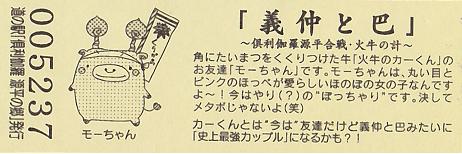 005237
道の駅「倶利伽羅 源平の郷」発行
モーちゃん
「義仲と巴」
~倶利伽羅源平合戦・火牛の計~
角にたいまつをくくりつけた牛「火牛のカーくん」の
お友達「モーちゃん」です。モーちゃんは、丸い目と
ピンクのほっぺが愛らしいほのぼの女の子なんです
よ~!今はやり(?)の"ぽっちゃり"です。決して
メタボじゃないよ(笑)
カーくんとは"今は"友達だけど義仲と巴みたいに
「史上最強カップル」になるかも?!